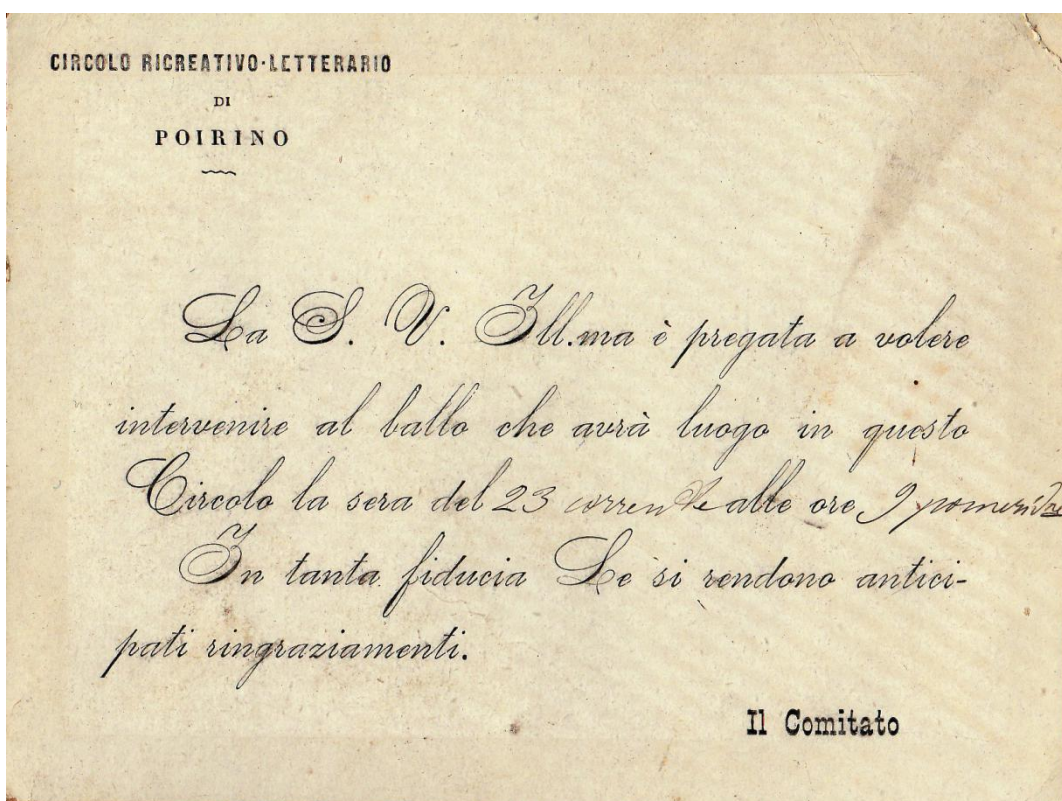 CIRCOLO RICREATIVO-LETTERARIO
DI
POIRINO
La S. V. Ill.ma è pregata a volere
intervenire al ballo che avrà luogo in questo
Circolo la sera del 23 corrente alle ore 9 pomerid.ne
In tanta fiducia Le si rendono antici-
pati ringraziamenti.
Il Comitato